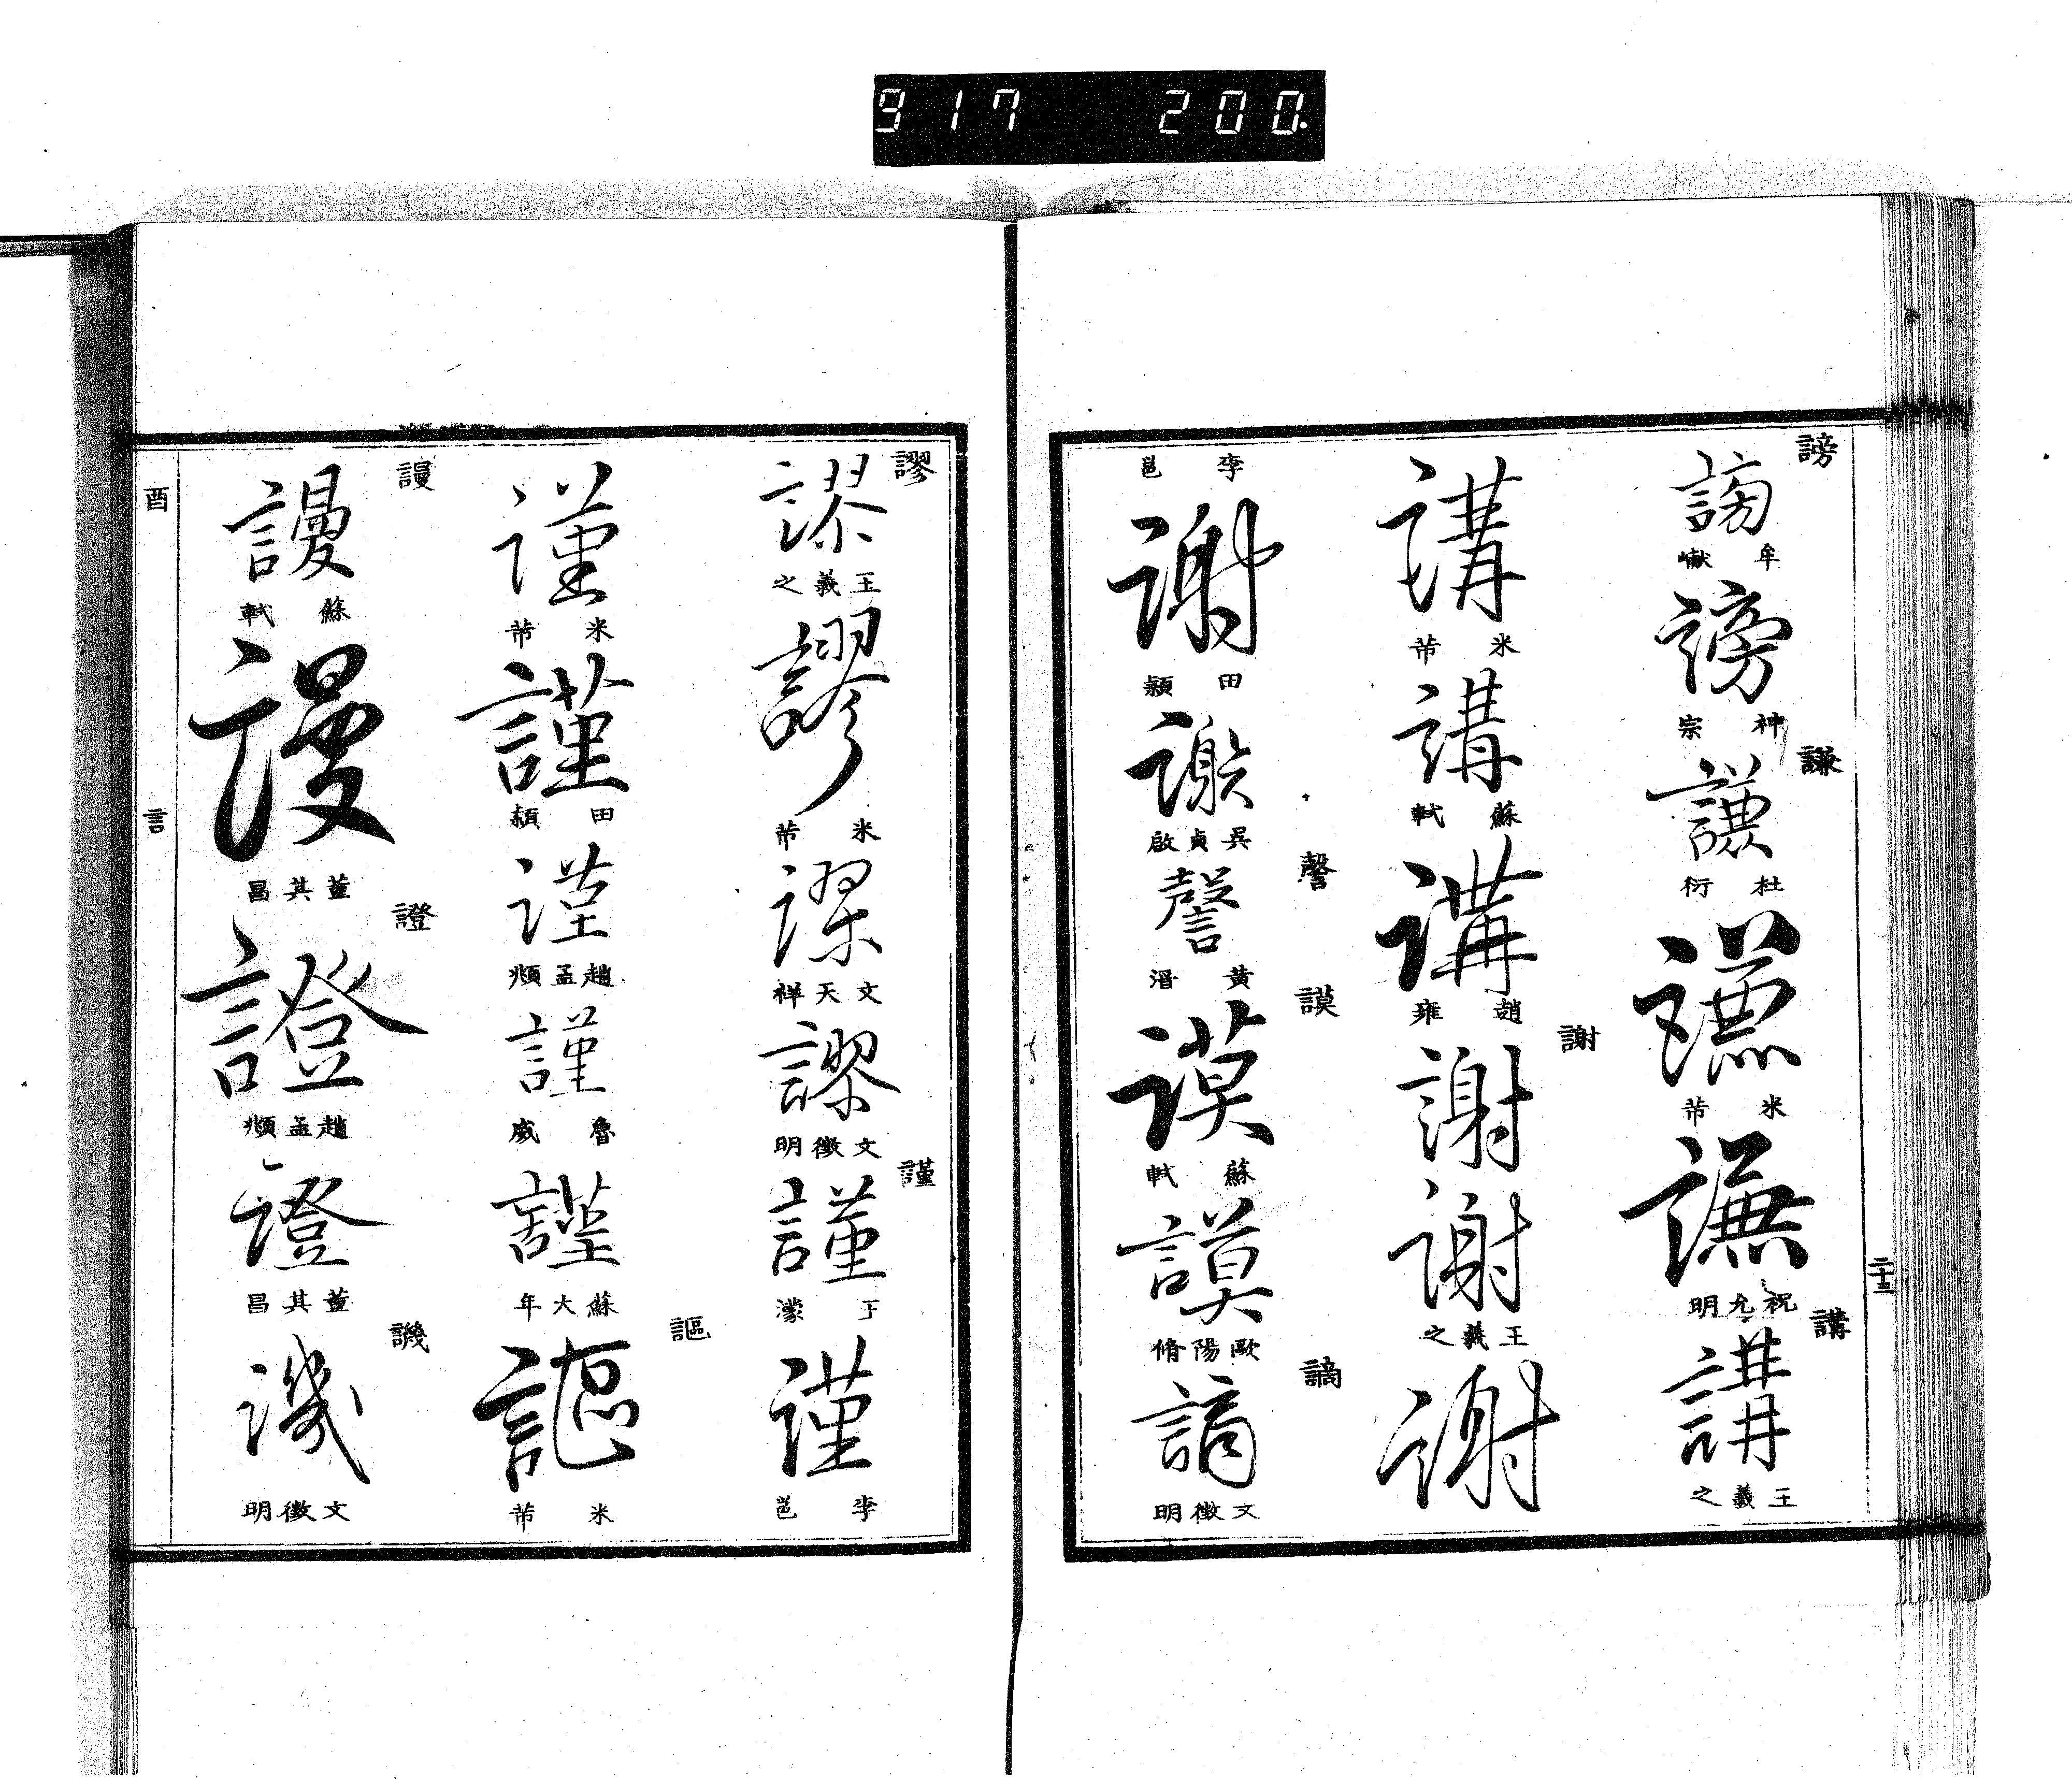 917 200.
謗
謗
牟巘
謗
神宗
謙
謙
杜衍
謙
米芾
謙
祝允明
講
講
王羲之
講
米芾
講
蘇軾
講
趙雍
謝
謝
謝
王羲之
謝
李邕
謝
田頴
謝
吳貞啟
謦
謦
黃溍
謨
謨
蘇軾
謨
歐陽脩
謫
謫
文徵明
二十三
謬
謬
王羲之
謬
米芾
謬
文天祥
謬
文徵明
謹
謹
謹
李邕
謹
米芾
謹
田頴
謹
趙孟頫
謹
魯威
謹
蘇大年
謳
謳
米芾
謾
謾
蘇軾
謾
董其昌
證
證
趙孟頫
證
董其昌
譏
譏
文徵明
酉
言